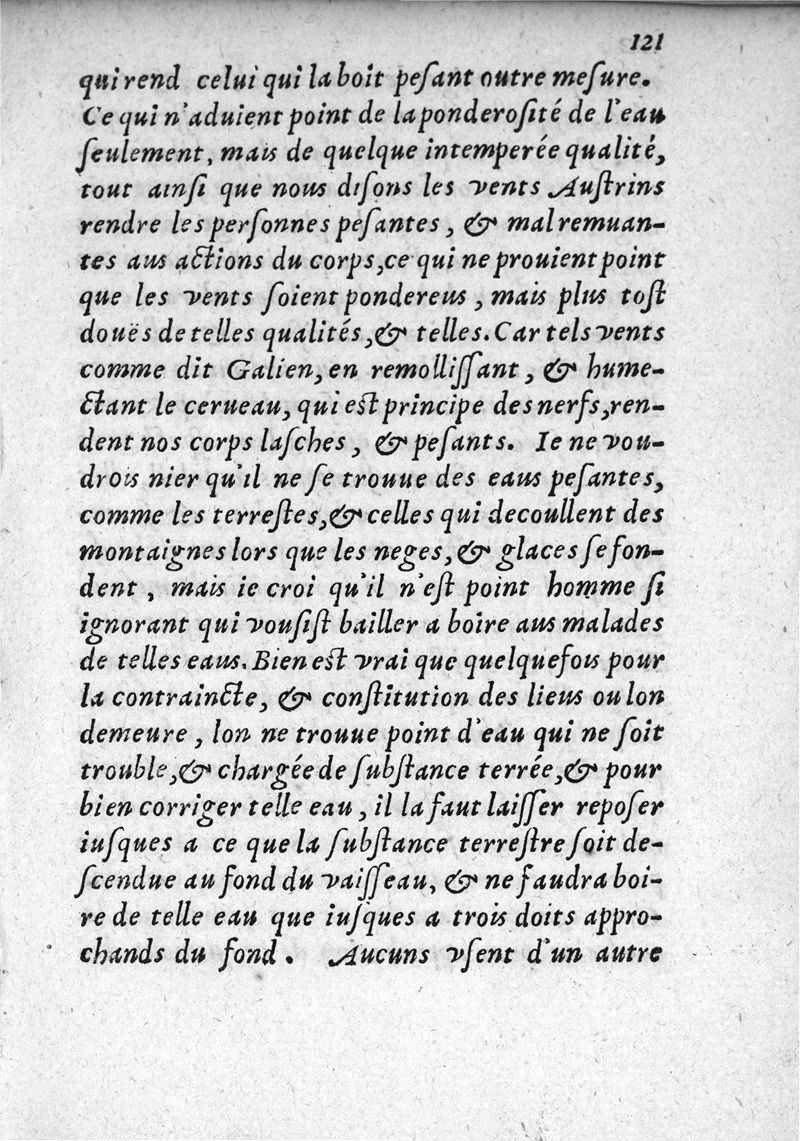 121
qui rend celui qui la boit peſant outre meſure.
Ce qui n'aduient point de la ponderoſité de l'eau
ſeulement, mais de quelque intemperée qualité,
tout ainſi que nous diſons les vents Auſtrins
rendre les perſonnes peſantes, & mal remuan-
tes aus actions du corps, ce qui ne prouient point
que les vents ſoient pondereus, mais plus toſt
douës de telles qualités, & telles. Car tels vents
comme dit Galien, en remolliſſant, & hume-
ctant le cerueau, qui est principe des nerfs, ren-
dent nos corps laſches, & peſants. Ie ne vou-
drois nier qu'il ne ſe trouue des eaus peſantes,
comme les terreſtes, & celles qui decoullent des
montaignes lors que les neges, & glaces ſe fon-
dent, mais ie croi qu'il n'eſt point homme ſi
ignorant qui vouſiſt bailler a boire aus malades
de telles eaus. Bien est vrai que quelquefois pour
la contraincte, & conſtitution des lieus ou lon
demeure, lon ne trouue point d'eau qui ne ſoit
trouble, & chargée de ſubſtance terrée, & pour
bien corriger telle eau, il la faut laiſſer repoſer
iuſques a ce que la ſubſtance terreſtre ſoit de-
ſcendue au fond du vaiſſeau, & ne faudra boi-
re de telle eau que iuſques a trois doits appro-
chands du fond. Aucuns vſent d'un autre